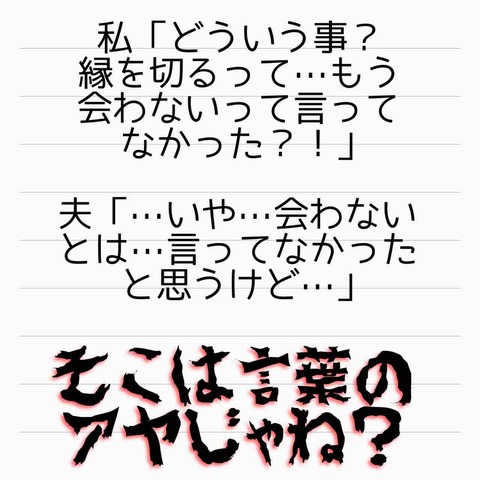 私「どういう事？
縁を切るって…もう
会わないって言って
なかった？！」
夫「…いや…会わない
とは…言ってなかった
と思うけど…」
そこは言葉の
アヤじゃね？